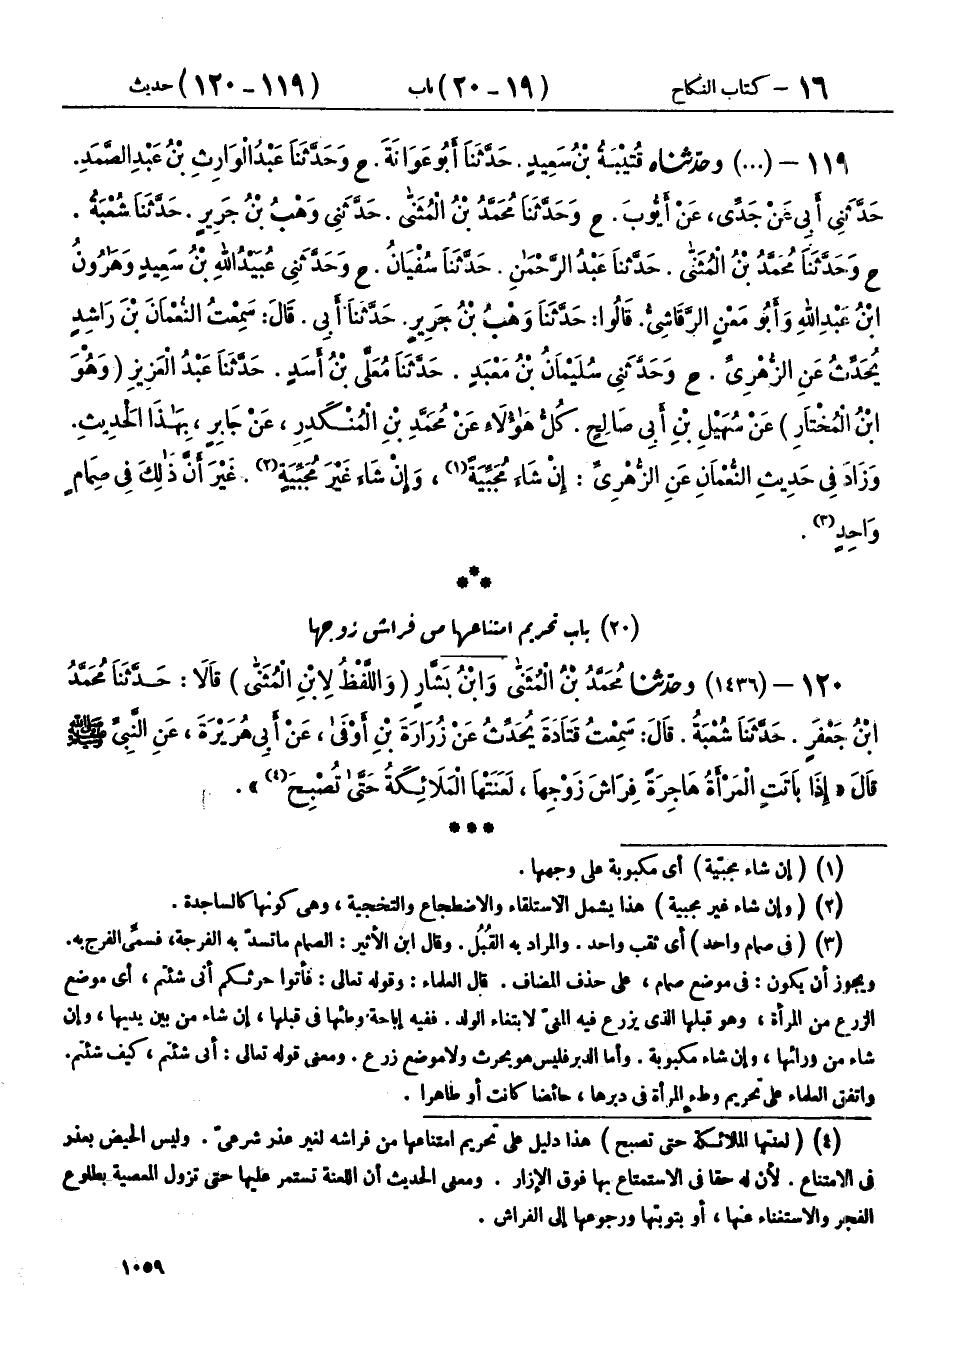 ١٦ – كتاب النكاح (١٩ – ٢٠) باب (١١٩ – ١٢٠) حديث
١١٩ – (...) وحدّثناه قُتَيْبَةُ بْنُ سَعِيدٍ . حَدَّثَنَا أَبُو عَوَانَةَ . ح وَحَدَّثَنَا عَبْدُ الْوَارِثِ بْنُ عَبْدِ الصَّمَدِ .
حَدَّثَنِي أَبِي عَنْ جَدِّي، عَنْ أَيُّوبَ . ح وَحَدَّثَنَا مُحَمَّدُ بْنُ الْمُثَنَّى . حَدَّثَنِي وَهْبُ بْنُ جَرِيرٍ . حَدَّثَنَا شُعْبَةُ .
ح وَحَدَّثَنَا مُحَمَّدُ بْنُ الْمُثَنَّى . حَدَّثَنَا عَبْدُ الرَّحْمٰنِ . حَدَّثَنَا سُفْيَانُ . ح وَحَدَّثَنِي عُبَيْدُ اللهِ بْنُ سَعِيدٍ وَهَارُونُ
ابْنُ عَبْدِ اللهِ وَأَبُو مَعْنٍ الرَّقَاشِيُّ. قَالُوا: حَدَّثَنَا وَهْبُ بْنُ جَرِيرٍ. حَدَّثَنَا أَبِي . قَالَ: سَمِعْتُ النُّعْمَانَ بْنَ رَاشِدٍ
يُحَدِّثُ عَنِ الزُّهْرِيِّ . ح وَحَدَّثَنِي سُلَيْمَانُ بْنُ مَعْبَدٍ . حَدَّثَنَا مُعَلَّى بْنُ أَسَدٍ . حَدَّثَنَا عَبْدُ الْعَزِيزِ (وَهُوَ
ابْنُ الْمُخْتَارِ) عَنْ سُهَيْلِ بْنِ أَبِي صَالِحٍ . كُلُّ هَؤُلَاءِ عَنْ مُحَمَّدِ بْنِ الْمُنْكَدِرِ ، عَنْ جَابِرٍ ، بِهَذَا الْحَدِيثِ.
وَزَادَ فِي حَدِيثِ النُّعْمَانِ عَنِ الزُّهْرِيِّ : إِنْ شَاءَ مُجَبِّيَةً(١) ، وَإِنْ شَاءَ غَيْرَ مُجَبِّيَةٍ(٢) . غَيْرَ أَنَّ ذٰلِكَ فِي صِمَامٍ
وَاحِدٍ(٣) .
***
(٢٠) باب تحريم امتناعها من فراش زوجها
١٢٠ – (١٤٣٦) وحدّثنا مُحَمَّدُ بْنُ الْمُثَنَّى وَابْنُ بَشَّارٍ (وَاللَّفْظُ لِابْنِ الْمُثَنَّى) قَالَا : حَدَّثَنَا مُحَمَّدُ
ابْنُ جَعْفَرٍ . حَدَّثَنَا شُعْبَةُ . قَالَ: سَمِعْتُ قَتَادَةَ يُحَدِّثُ عَنْ زُرَارَةَ بْنِ أَوْفَى ، عَنْ أَبِي هُرَيْرَةَ ، عَنِ النَّبِيِّ ﷺ
قَالَ « إِذَا بَاتَتِ الْمَرْأَةُ هَاجِرَةً فِرَاشَ زَوْجِهَا ، لَعَنَتْهَا الْمَلَائِكَةُ حَتَّى تُصْبِحَ(٤) » .
***
(١) ( إن شاء مجبّية ) أى مكبوبة على وجهها .
(٢) ( وإن شاء غير مجبية ) هذا يشمل الاستلقاء والاضطجاع والتخجية ، وهى كونها كالساجدة .
(٣) ( فى صمام واحد ) أى ثقب واحد . والمراد به القُبُل . وقال ابن الأثير : الصمام ما تسدّ به الفرجة، فسمّى الفرج به.
ويجوز أن يكون : فى موضع صمام ، على حذف المضاف . قال العلماء : وقوله تعالى : فأتوا حرثكم أنى شئتم ، أى موضع
الزرع من المرأة ، وهو قبلها الذى يزرع فيه المنىّ لابتغاء الولد . ففيه إباحة وطئها فى قبلها ، إن شاء من بين يديها ، وإن
شاء من ورائها ، وإن شاء مكبوبة . وأما الدبر فليس هو بحرث ولا موضع زرع . ومعنى قوله تعالى : أنى شئتم ، كيف شئتم.
واتفق العلماء على تحريم وطء المرأة فى دبرها ، حائضا كانت أو طاهرا .
(٤) ( لعنتها الملائكة حتى تصبح ) هذا دليل على تحريم امتناعها من فراشه لغير عذر شرعىّ . وليس الحيض بعذر
فى الامتناع . لأن له حقا فى الاستمتاع بها فوق الإزار . ومعنى الحديث أن اللعنة تستمر عليها حتى تزول المعصية بطلوع
الفجر والاستغناء عنها ، أو بتوبتها ورجوعها إلى الفراش .
١٠٥٩